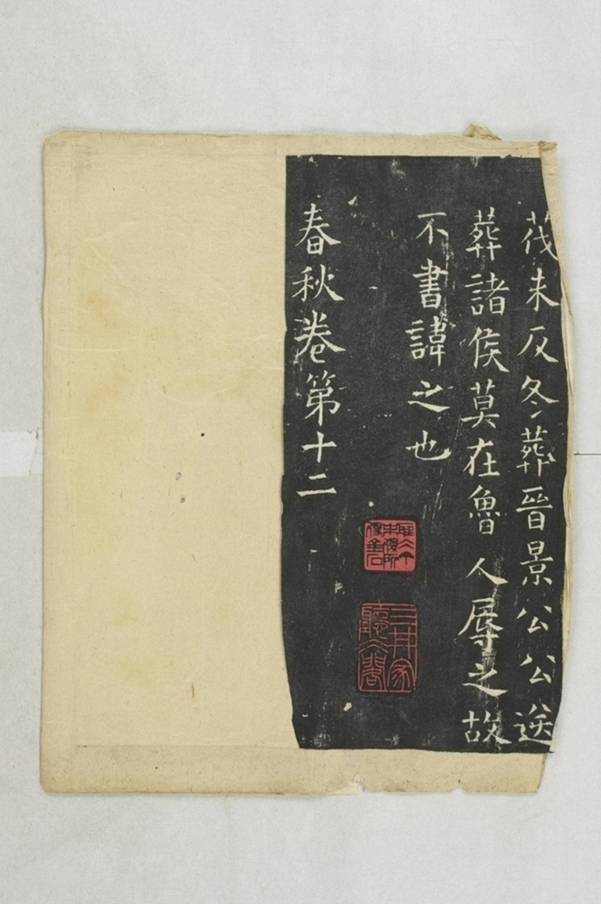 茷未反冬葬晉景公公送
葬諸侯莫在魯人辱之故
不書諱之也
春秋卷第十二
三井家
聽冰閣